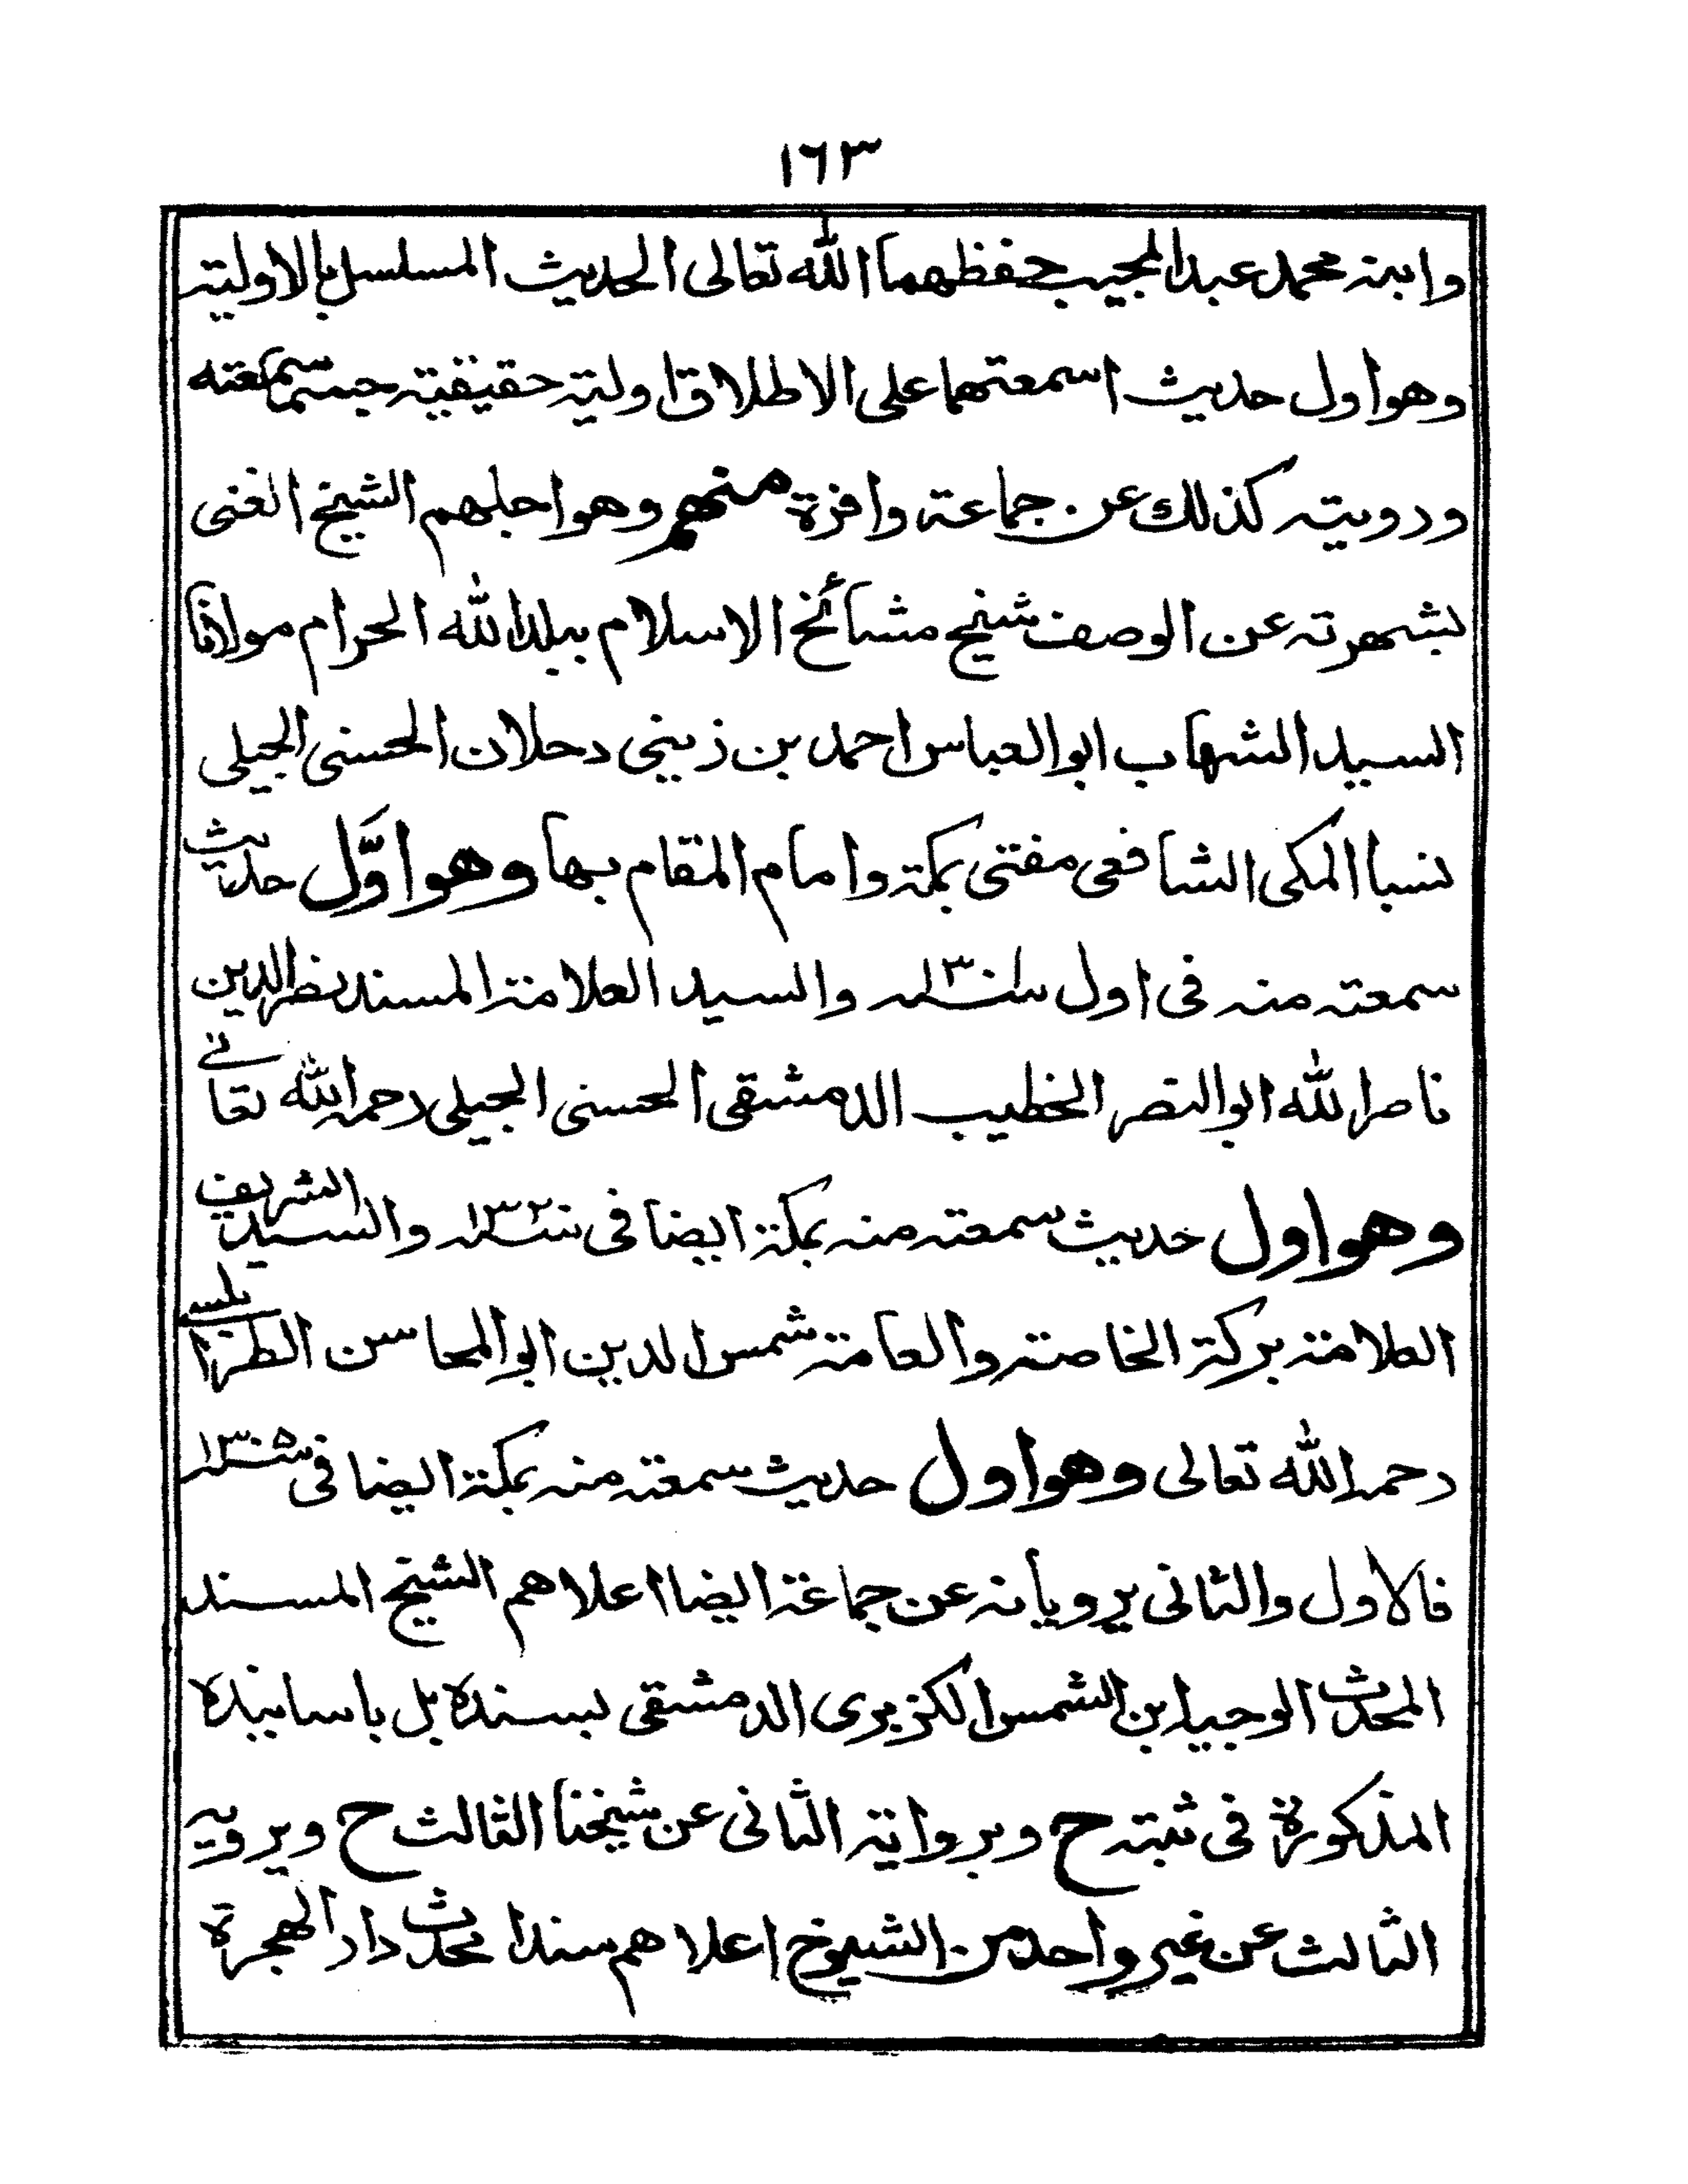 ١٦٣
وابنه محمد عبدالمجيب حفظهما الله تعالى الحديث المسلسل بالاولية
وهو اول حديث اسمعتهما على الاطلاق اولية حقيقية حسبما سمعته
ورويته كذلك عن جماعة وافرة منهم وهو اجلهم الشيخ الغنى
بشهرته عن الوصف شيخ مشائخ الاسلام ببلد الله الحرام مولانا
السيد الشهاب ابو العباس احمد بن زينى دحلان الحسنى الجيلى
نسبا المكى الشافعى مفتى بمكة وامام المقام بها وهو اوّل حديث
سمعته منه فى اول سنة ١٣٠١ والسيد العلامة المسند نصر الدين
ناصر الله ابو النصر الخطيب الدمشقى الحسنى الجيلى رحمه الله تعالى
وهو اول حديث سمعته منه بمكة ايضا فى سنة ١٣٢ والسيد الشريف
العلامة بركة الخاصة والعامة شمس الدين ابو المحاسن الطرابلسى
رحمه الله تعالى وهو اول حديث سمعته منه بمكة ايضا فى سنة ١٣٠٥
فالاول والثانى يرويانه عن جماعة ايضا اعلاهم الشيخ المسند
المحدث الوجيه ابن الشمس الكزبرى الدمشقى بسنده بل باسانيده
المذكورة فى ثبته ح وبرواية الثانى عن شيخنا الثالث ح ويرويه
الثالث عن غير واحد من الشيوخ اعلاهم سندا محدث دار الهجرة